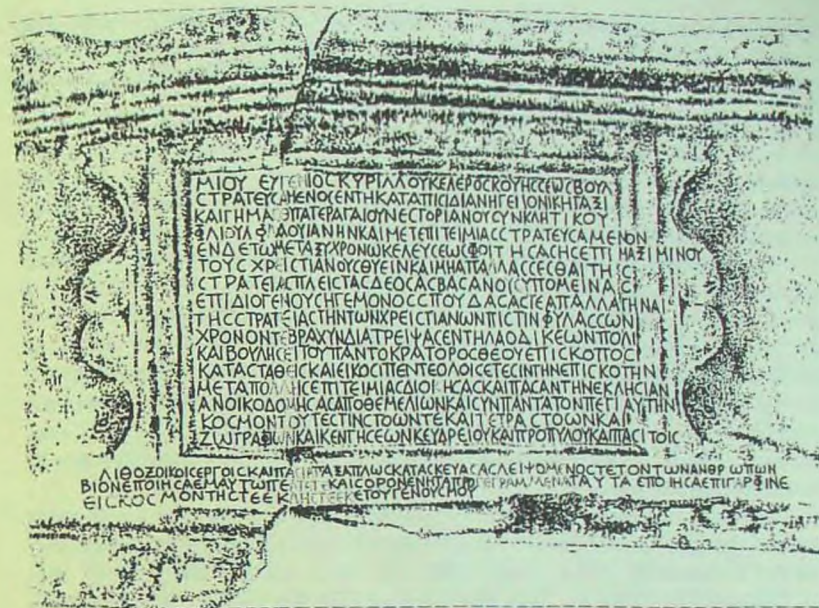 ΜΙΟΥ ΕΥΓΕΝΙΟϹ ΚΥΡΙΛΛΟΥ ΚΕΛΕΡΟϹ ΚΟΥΗϹϹΕΩϹ ΒΟΥΛ
ϹΤΡΑΤΕΥϹΑΜΕΝΟϹ ΕΝ ΤΗ ΚΑΤΑ ΠΙϹΙΔΙΑΝ ΗΓΕΙΟΝΙΚΗ ΤΑΞΙ
ΚΑΙ ΓΗΜΑϹ ΘΥΓΑΤΕΡΑ ΓΑΙΟΥ ΝΕϹΤΟΡΙΑΝΟΥ ϹΥΝΚΛΗΤΙΚΟΥ
ΦΛ ΙΟΥΛ ΦΛΑΟΥΙΑΝΗΝ ΚΑΙ ΜΕΤ ΕΠΙΤΕΙΜΙΑϹ ϹΤΡΑΤΕΥϹΑΜΕΝΟΝ
ΕΝ ΔΕ ΤΩ ΜΕΤΑΞΥ ΧΡΟΝΩ ΚΕΛΕΥϹΕΩϹ ΦΟΙΤΗϹΑϹΗϹ ΕΠΙ ΜΑΞΙΜΙΝΟΥ
ΤΟΥϹ ΧΡΕΙϹΤΙΑΝΟΥϹ ΘΥΕΙΝ ΚΑΙ ΜΗ ΑΠΑΛΛΑϹϹΕϹΘΑΙ ΤΗϹ
ϹΤΡΑΤΕΙΑϹ ΠΛΕΙϹΤΑϹ ΔΕ ΟϹΑϹ ΒΑϹΑΝΟΥϹ ΥΠΟΜΕΙΝΑϹ
ΕΠΙ ΔΙΟΓΕΝΟΥϹ ΗΓΕΜΟΝΟϹ ϹΠΟΥΔΑϹΑϹ ΤΕ ΑΠΑΛΛΑΓΗΝΑΙ
ΤΗϹ ϹΤΡΑΤΕΙΑϹ ΤΗΝ ΤΩΝ ΧΡΕΙϹΤΙΑΝΩΝ ΠΙϹΤΙΝ ΦΥΛΑϹϹΩΝ
ΧΡΟΝΟΝ ΤΕ ΒΡΑΧΥΝ ΔΙΑΤΡΕΙΨΑϹ ΕΝ ΤΗ ΛΑΟΔΙΚΕΩΝ ΠΟΛΙ
ΚΑΙ ΒΟΥΛΗϹΕΙ ΤΟΥ ΠΑΝΤΟΚΡΑΤΟΡΟϹ ΘΕΟΥ ΕΠΙϹΚΟΠΟϹ
ΚΑΤΑϹΤΑΘΕΙϹ ΚΑΙ ΕΙΚΟϹΙ ΠΕΝΤΕ ΟΛΟΙϹ ΕΤΕϹΙΝ ΤΗΝ ΕΠΙϹΚΟΠΗΝ
ΜΕΤΑ ΠΟΛΛΗϹ ΕΠΙΤΕΙΜΙΑϹ ΔΙΟΙΚΗϹΑϹ ΚΑΙ ΠΑϹΑΝ ΤΗΝ ΕΚΛΗϹΙΑΝ
ΑΝΟΙΚΟΔΟΜΗϹΑϹ ΑΠΟ ΘΕΜΕΛΙΩΝ ΚΑΙ ϹΥΝΠΑΝΤΑ ΤΟΝ ΠΕΡΙ ΑΥΤΗΝ
ΚΟϹΜΟΝ ΤΟΥΤΕϹΤΙΝ ϹΤΟΩΝ ΤΕ ΚΑΙ ΤΕΤΡΑϹΤΟΩΝ ΚΑΙ
ΖΩΓΡΑΦΙΩΝ ΚΑΙ ΚΕΝΤΗϹΕΩΝ ΚΕ ΥΔΡΕΙΟΥ ΚΑΙ ΠΡΟΠΥΛΟΥ ΚΑΙ ΠΑϹΙ ΤΟΙϹ
ΛΙΘΟΞΟΙΚΟΙϹ ΕΡΓΟΙϹ ΚΑΙ ΠΑϹΙ ΑΠΑΞΑΠΛΩϹ ΚΑΤΑϹΚΕΥΑϹΑϹ ΛΕΙΨΟΜΕΝΟϹ ΤΕ ΤΟΝ ΤΩΝ ΑΝΘΡΩΠΩΝ
ΒΙΟΝ ΕΠΟΙΗϹΑ ΕΜΑΥΤΩ ΠΕΛΤΑ ΤΕ ΚΑΙ ϹΟΡΟΝ ΕΝ Η ΤΑ ΠΡΟΓΕΓΡΑΜΜΕΝΑ ΤΑΥΤΑ ΕΠΟΙΗϹΑ ΕΠΙΓΡΑΦΙΝΕ
ΕΙϹ ΚΟϹΜΟΝ ΤΗϹ ΤΕ ΕΚΛΗϹΙΑϹ ΚΕ ΤΟΥ ΓΕΝΟΥϹ ΜΟΥ